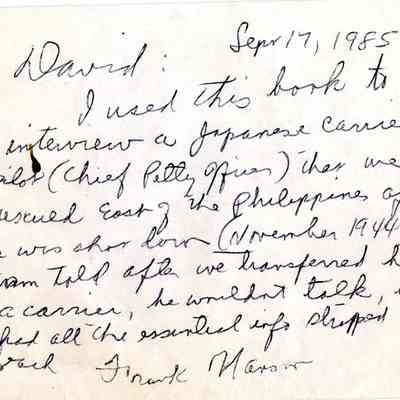 Sept 17, 1985
David:
I used this book to
interview a Japanese carrie
ilot (Chief Petty Officer) that we
escued East of the Philippines a
e was shot down (November 1944
am told after we transferred h
a carrier, he wouldn't talk,
had all the essential info stripped
Frank